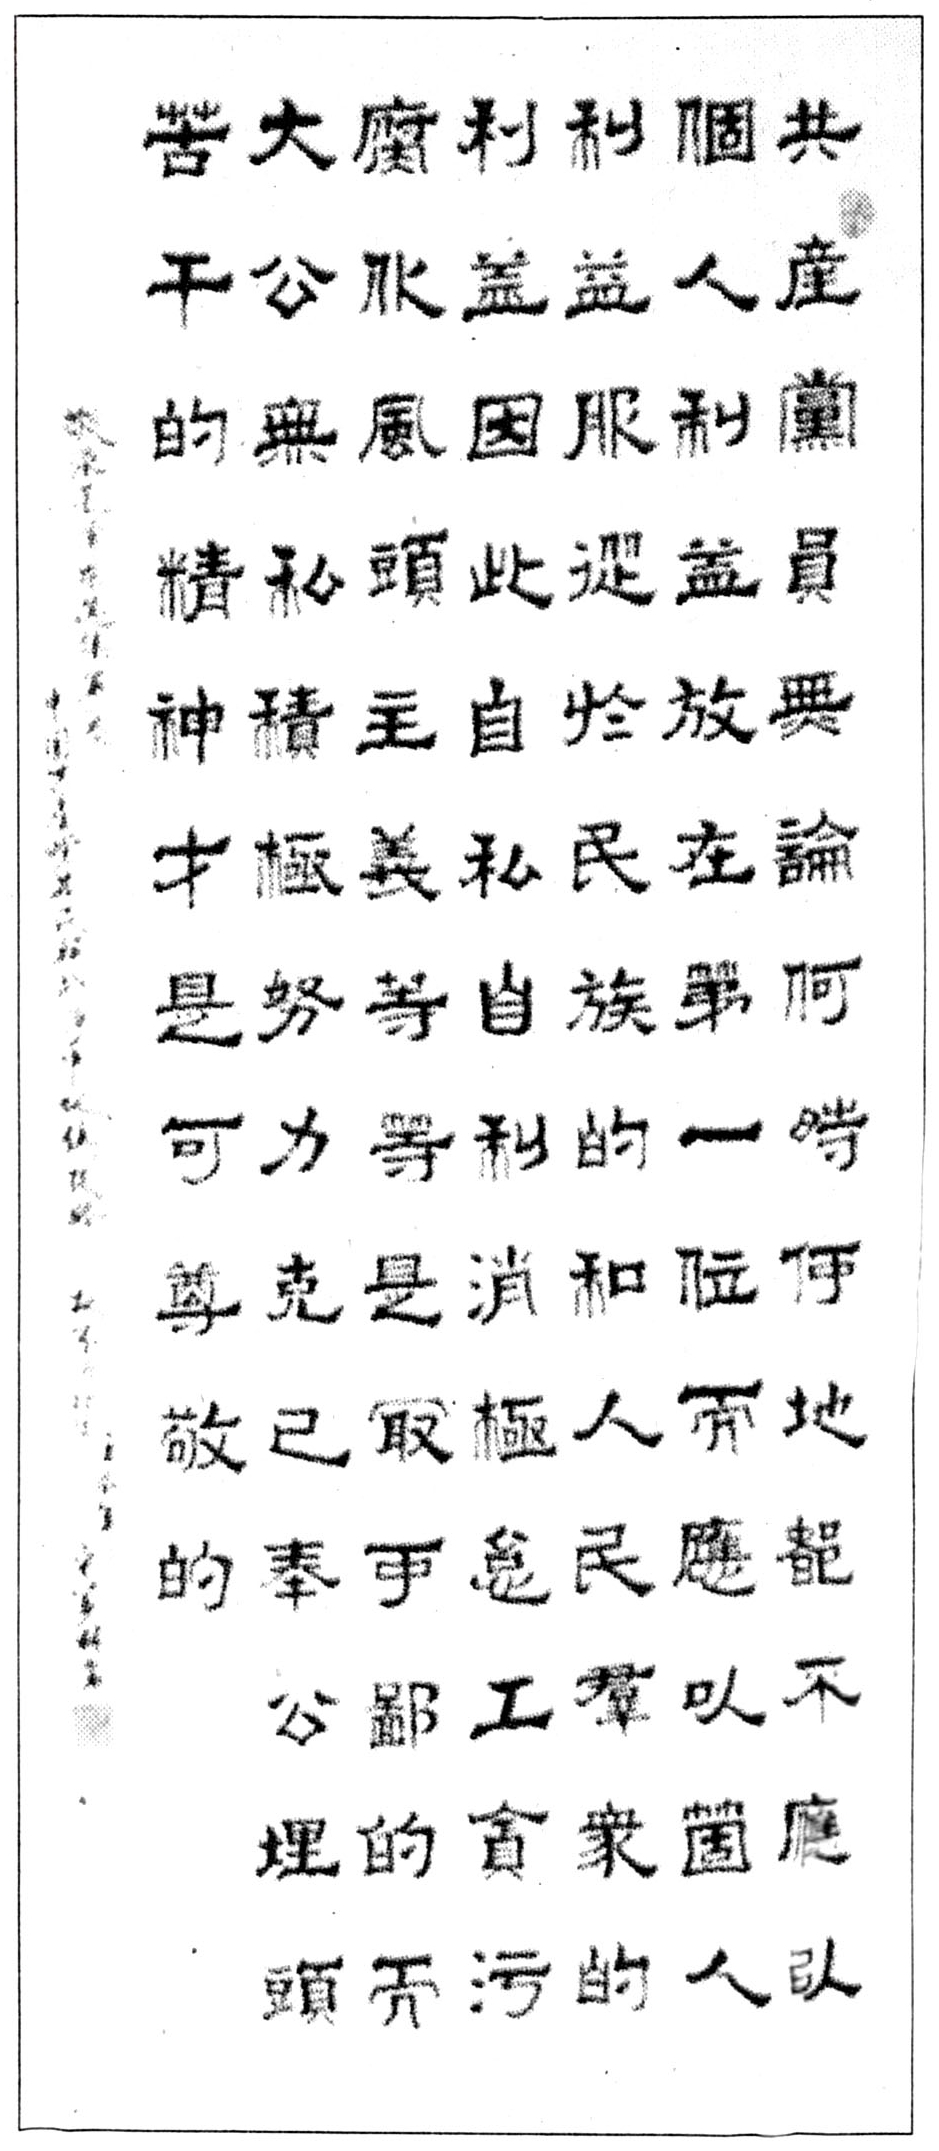 共産黨員無論何時何地都不應以
個人利益放在第一位而應以個人
利益服從於民族的和人民羣衆的
利益因此自私自利消極怠工貪污
腐化風頭主義等等是最可鄙的而
大公無私積極努力克己奉公埋頭
苦干的精神才是可尊敬的